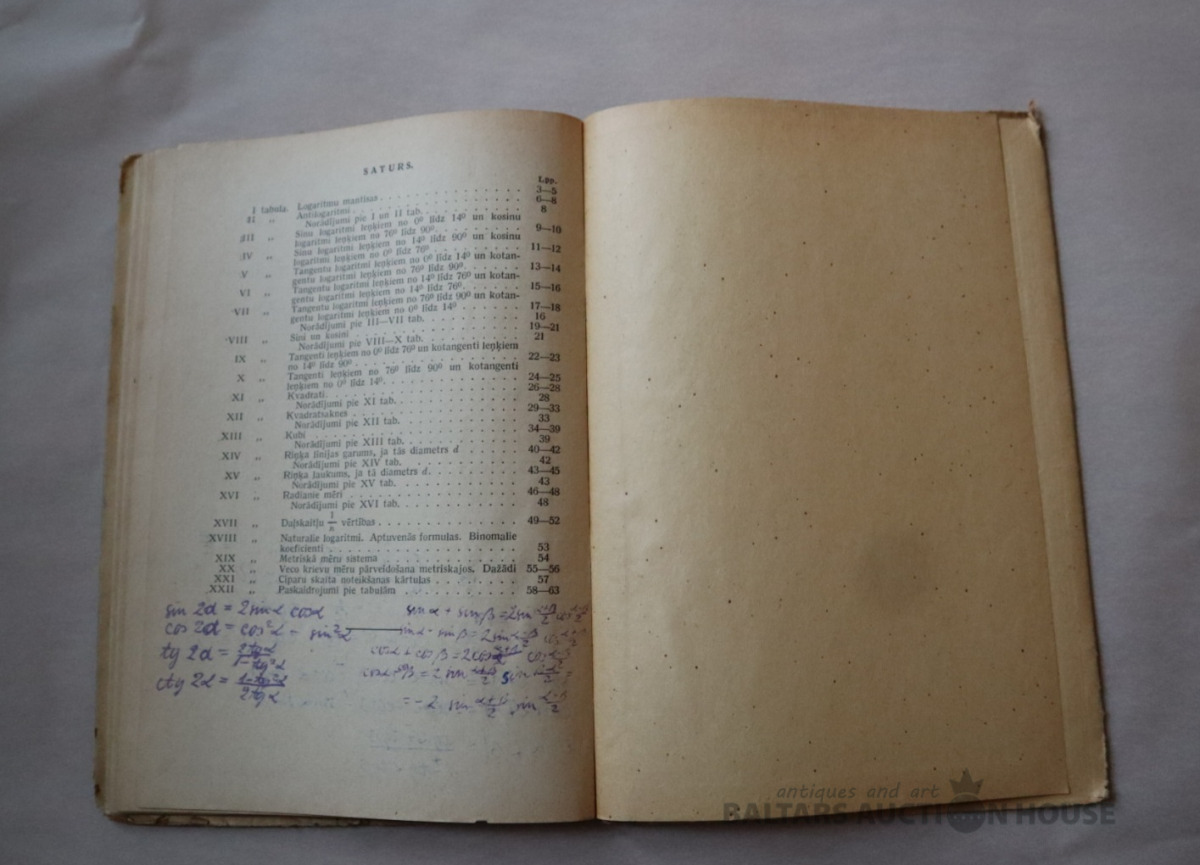 SATURS.
Lpp.
I tabula. Logaritmu mantisas . . . 3—5
II „ Antilogaritmi . . . 6—8
Norādījumi pie I un II tab. . . . 8
III „ Sinu logaritmi leņķiem no 0º līdz 14º un kosinu
logaritmi leņķiem no 76º līdz 90º. . . . 9—10
IV „ Sinu logaritmi leņķiem no 14º līdz 90º un kosinu
logaritmi leņķiem no 0º līdz 76º . . . 11—12
V „ Tangentu logaritmi leņķiem no 0º līdz 14º un kotan-
gentu logaritmi leņķiem no 76º līdz 90º. . . . 13—14
VI „ Tangentu logaritmi leņķiem no 14º līdz 76º un kotan-
gentu logaritmi leņķiem no 14º līdz 76º. . . . 15—16
VII „ Tangentu logaritmi leņķiem no 76º līdz 90º un kotan-
gentu logaritmi leņķiem no 0º līdz 14º . . . 17—18
Norādījumi pie III—VII tab. . . . 16
VIII „ Sini un kosini . . . 19—21
Norādījumi pie VIII—X tab. . . . 21
IX „ Tangenti leņķiem no 0º līdz 76º un kotangenti leņķiem
no 14º līdz 90º . . . 22—23
X „ Tangenti leņķiem no 76º līdz 90º un kotangenti
leņķiem no 0º līdz 14º. . . . 24—25
XI „ Kvadrati. . . . 26—28
Norādījumi pie XI tab. . . . 28
XII „ Kvadratsaknes . . . 29—33
Norādījumi pie XII tab. . . . 33
XIII „ Kubi . . . 34—39
Norādījumi pie XIII tab. . . . 39
XIV „ Riņķa līnijas garums, ja tās diametrs d . . . 40—42
Norādījumi pie XIV tab. . . . 42
XV „ Riņķa laukums, ja tā diametrs d . . . 43—45
Norādījumi pie XV tab. . . . 43
XVI „ Radianie mēri . . . 46—48
Norādījumi pie XVI tab. . . . 48
XVII „ Daļskaitļu 1/n vērtības . . . 49—52
XVIII „ Naturalie logaritmi. Aptuvenās formulas. Binomalie
koeficienti . . . 53
XIX „ Metriskā mēru sistema . . . 54
XX „ Veco krievu mēru pārveidošana metriskajos. Dažādi 55—56
XXI „ Ciparu skaita noteikšanas kārtulas . . . 57
XXII „ Paskaidrojumi pie tabulām . . . 58—63
sin 2α = 2 sinα cosα
cos 2α = cos²α - sin²α
tg 2α = 2tgα / 1-tg²α
ctg 2α = 1-tg²α / 2tgα
sinα + sinβ = 2 sin α+β/2 cos α-β/2
sinα - sinβ = 2 sin α-β/2 cos α+β/2
cosα + cosβ = 2 cos α+β/2 cos α-β/2
= -2 sin α+β/2 sin α-β/2
antiques and art
BALTARS AUCTION HOUSE